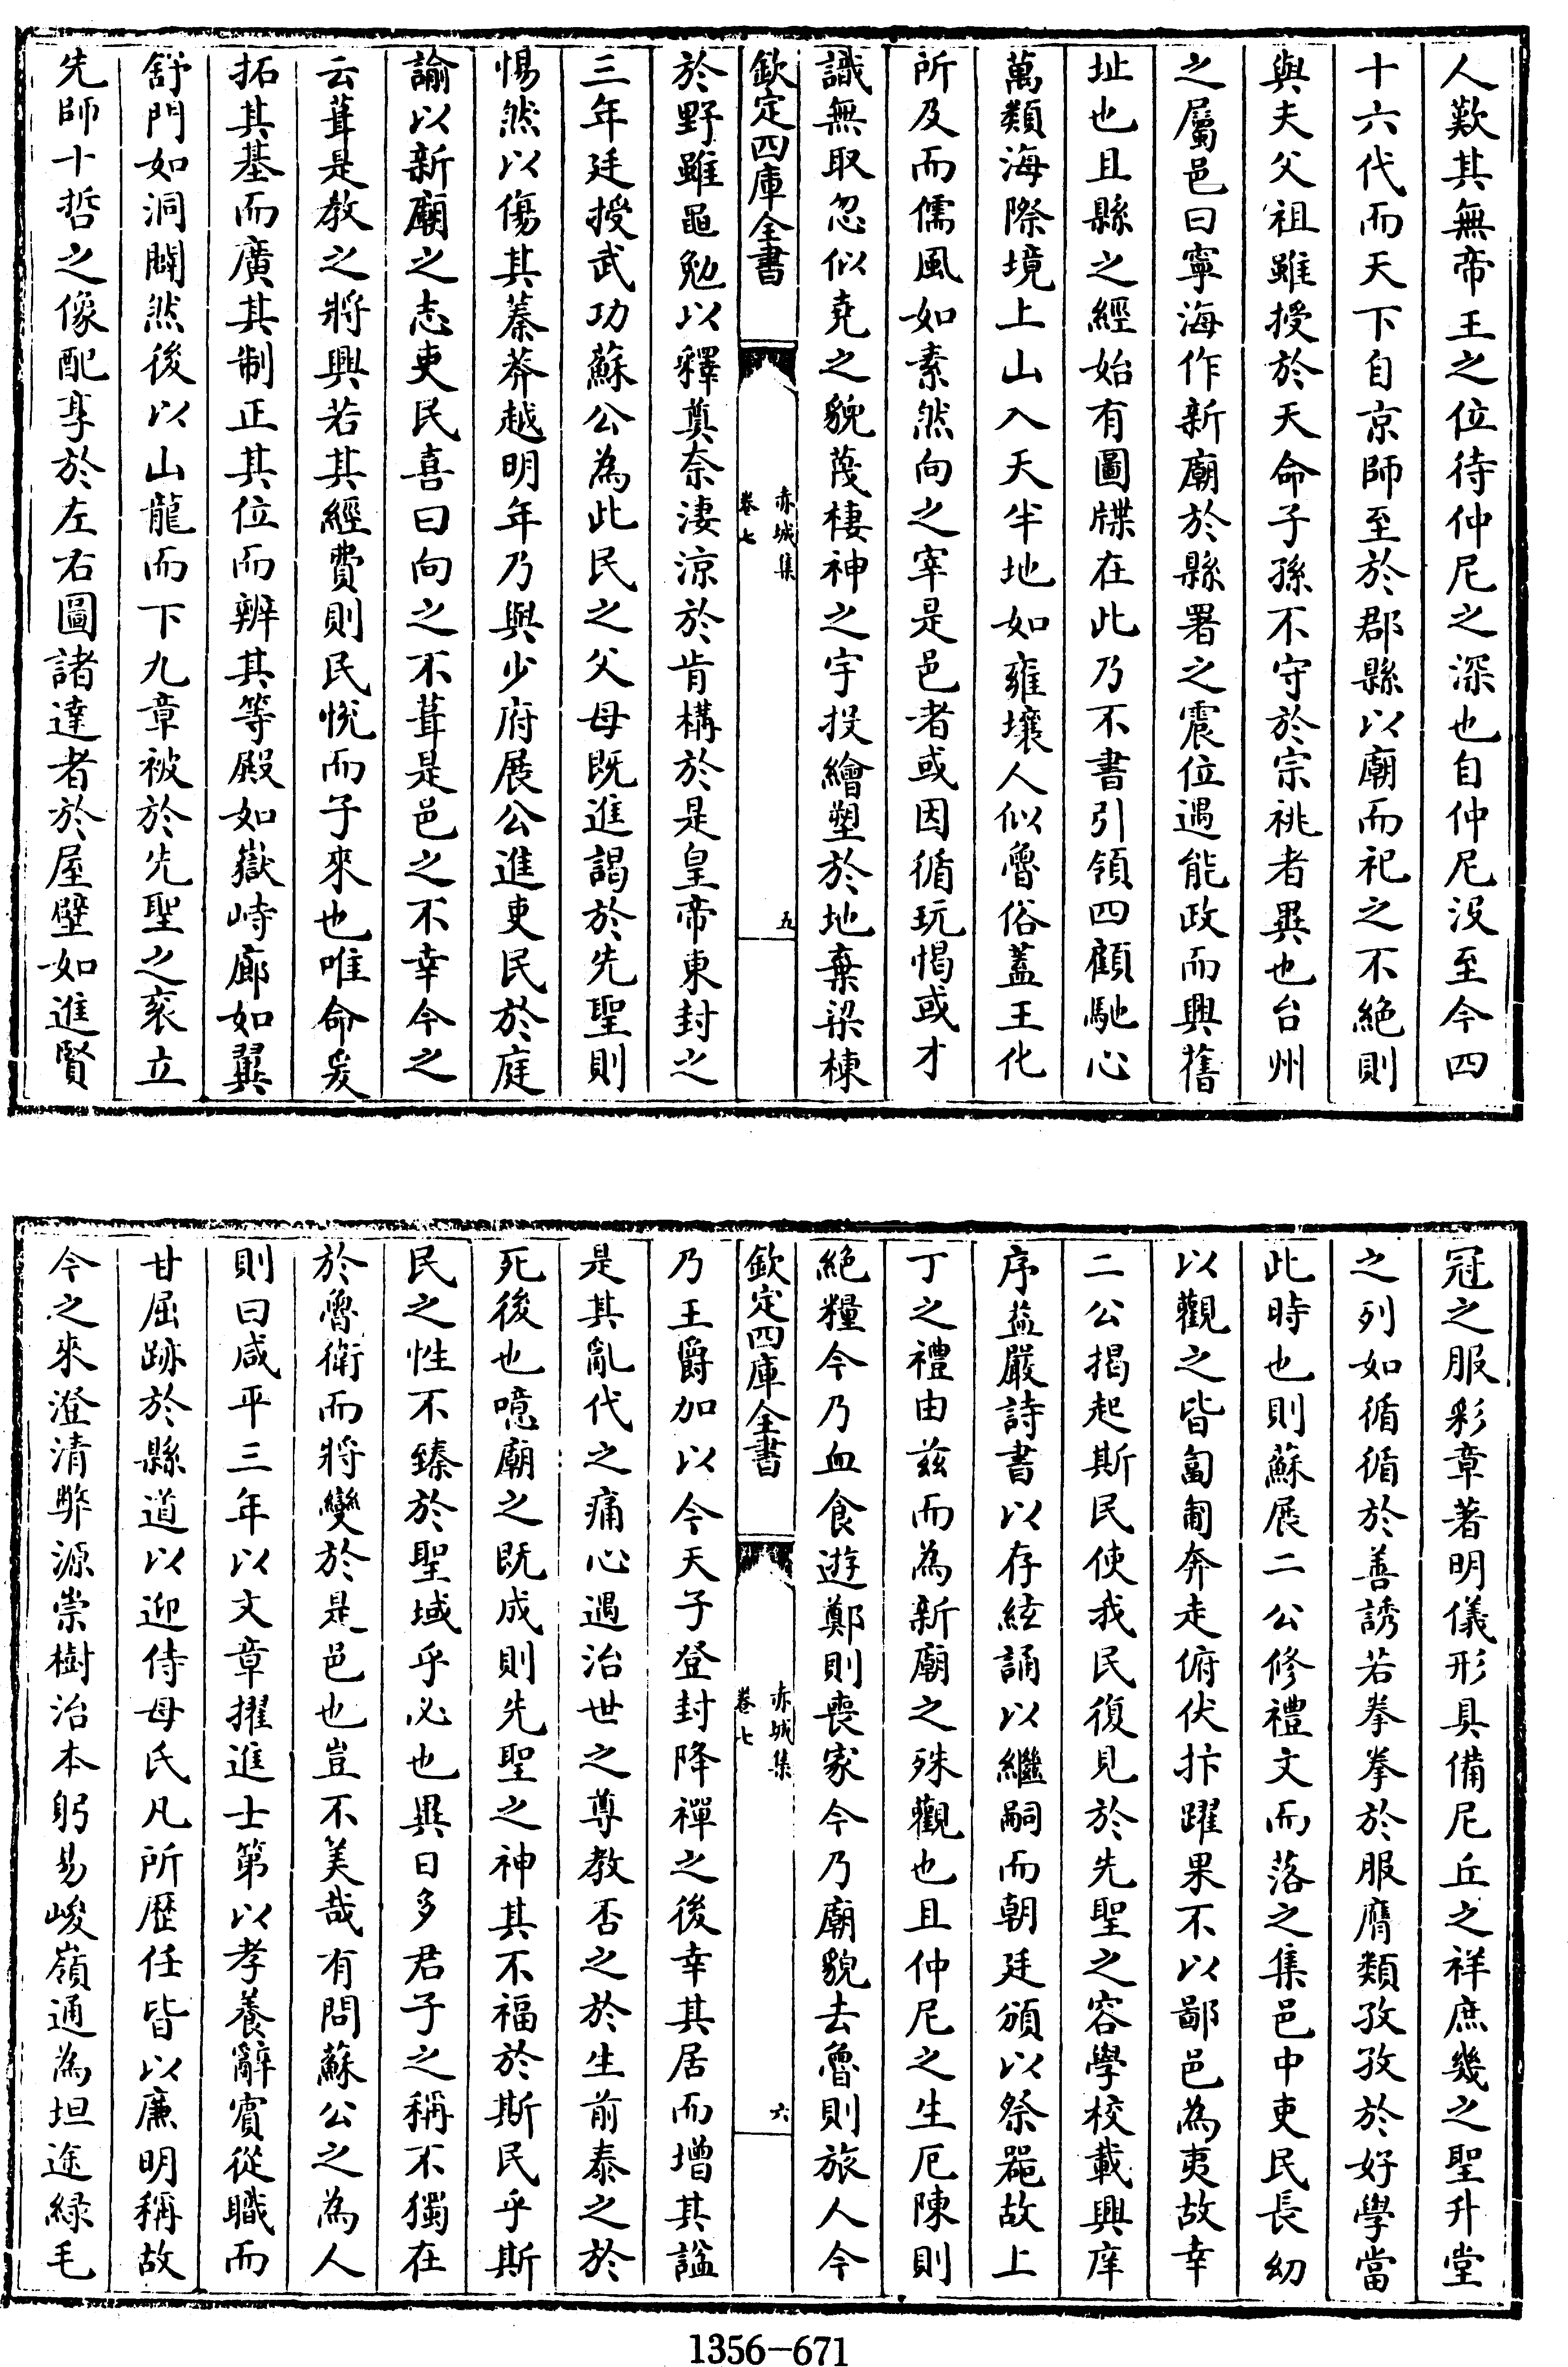 人歎其無帝王之位待仲尼之深也自仲尼没至今四
十六代而天下自京師至於郡縣以廟而祀之不絶則
與夫父祖雖授於天命子孫不守於宗祧者異也台州
之屬邑曰寧海作新廟於縣署之震位遇能政而興舊
址也且縣之經始有圖牒在此乃不書引領四顧馳心
萬類海際境上山入天半地如雍壤人似魯俗蓋王化
所及而儒風如素然向之宰是邑者或因循玩愒或才
識無取忽似堯之貌蔑棲神之宇投繪塑於地棄梁棟
欽定四庫全書
赤城集
卷七
五
於野雖黽勉以釋奠奈淒涼於肯構於是皇帝東封之
三年廷授武功蘇公為此民之父母既進謁於先聖則
惕然以傷其蓁莽越明年乃與少府展公進吏民於庭
諭以新廟之志吏民喜曰向之不葺是邑之不幸今之
云葺是教之將興若其經費則民悅而子來也唯命爰
拓其基而廣其制正其位而辨其等殿如嶽峙廊如翼
舒門如洞闢然後以山龍而下九章被於先聖之衮立
先師十哲之像配享於左右圖諸達者於屋壁如進賢
冠之服彩章著明儀形具備尼丘之祥庶幾之聖升堂
之列如循循於善誘若拳拳於服膺類孜孜於好學當
此時也則蘇展二公修禮文而落之集邑中吏民長幼
以觀之皆匍匐奔走俯伏抃躍果不以鄙邑為夷故幸
二公揭起斯民使我民復見於先聖之容學校載興庠
序益嚴詩書以存絃誦以繼嗣而朝廷頒以祭器故上
丁之禮由兹而為新廟之殊觀也且仲尼之生厄陳則
絶糧今乃血食遊鄭則喪家今乃廟貌去魯則旅人今
欽定四庫全書
赤城集
卷七
六
乃王爵加以今天子登封降禪之後幸其居而增其諡
是其亂代之痛心遇治世之尊教否之於生前泰之於
死後也噫廟之既成則先聖之神其不福於斯民乎斯
民之性不臻於聖域乎必也異日多君子之稱不獨在
於魯衛而將變於是邑也豈不美哉有問蘇公之為人
則曰咸平三年以文章擢進士第以孝養辭賓從職而
甘屈跡於縣道以迎侍母氏凡所歷任皆以廉明稱故
今之來澄清弊源崇樹治本躬易峻嶺通為坦途綠毛
1356-671